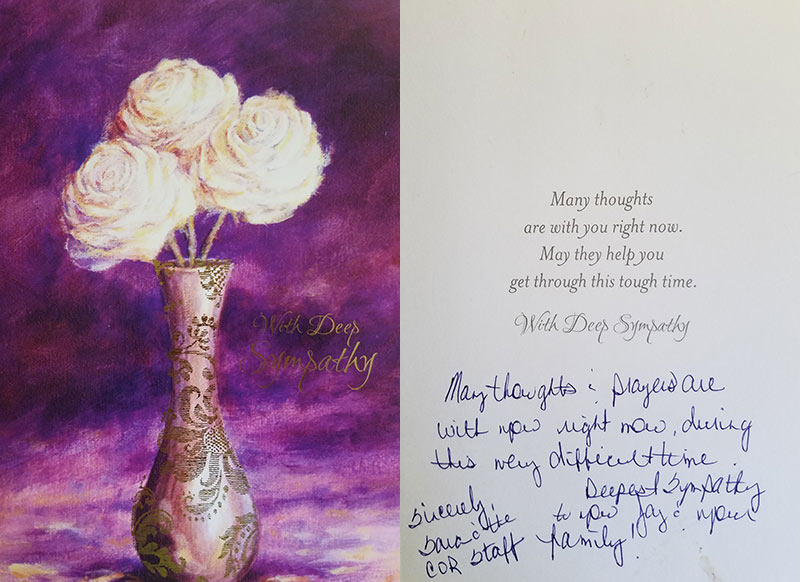 With Deep
Sympathy
Many thoughts
are with you right now.
May they help you
get through this tough time.
With Deep Sympathy
Many thoughts & prayers are
with you right now, during
this very difficult time.
Deepest Sympathy
to you Jay & your
family!
Sincerely,
Sara & the
COR Staff